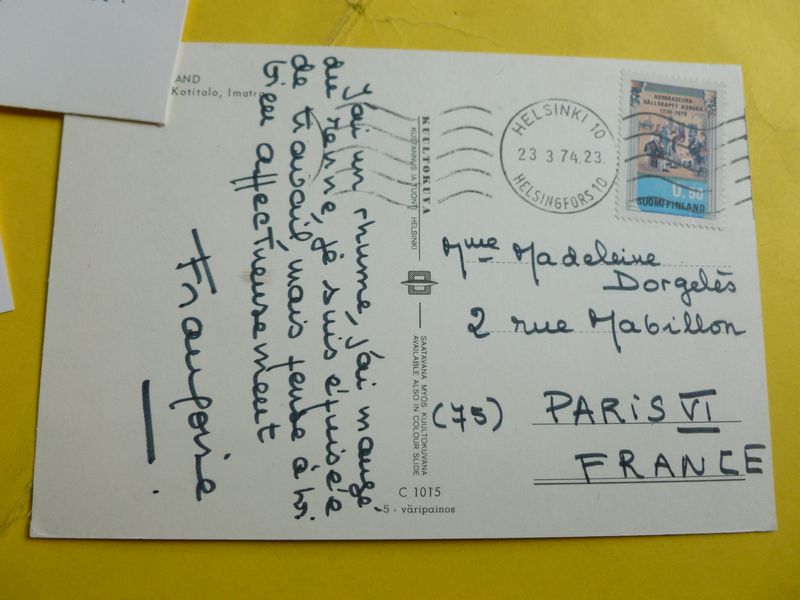 AND
Kotitalo, Imatra
J'ai un rhume, j'ai mangé
du renne, je suis épuisée
de travail mais pense à toi
bien affectueusement
Françoise
KUULTOKUVA
KUSTANNUS JA TUONTI HELSINKI
SAATAVANA MYÖS KUULTOKUVANA
AVAILABLE ALSO IN COLOUR SLIDE
C 1015
-5 - väripainos
HELSINKI 10
23 3 74.23.
HELSINGFORS 10
AURORASEURA
SÄLLSKAPET AURORA
1770-1970
0,50
SUOMI-FINLAND
Mme Madeleine
Dorgelès
2 rue Mabillon
(75) PARIS VI
FRANCE